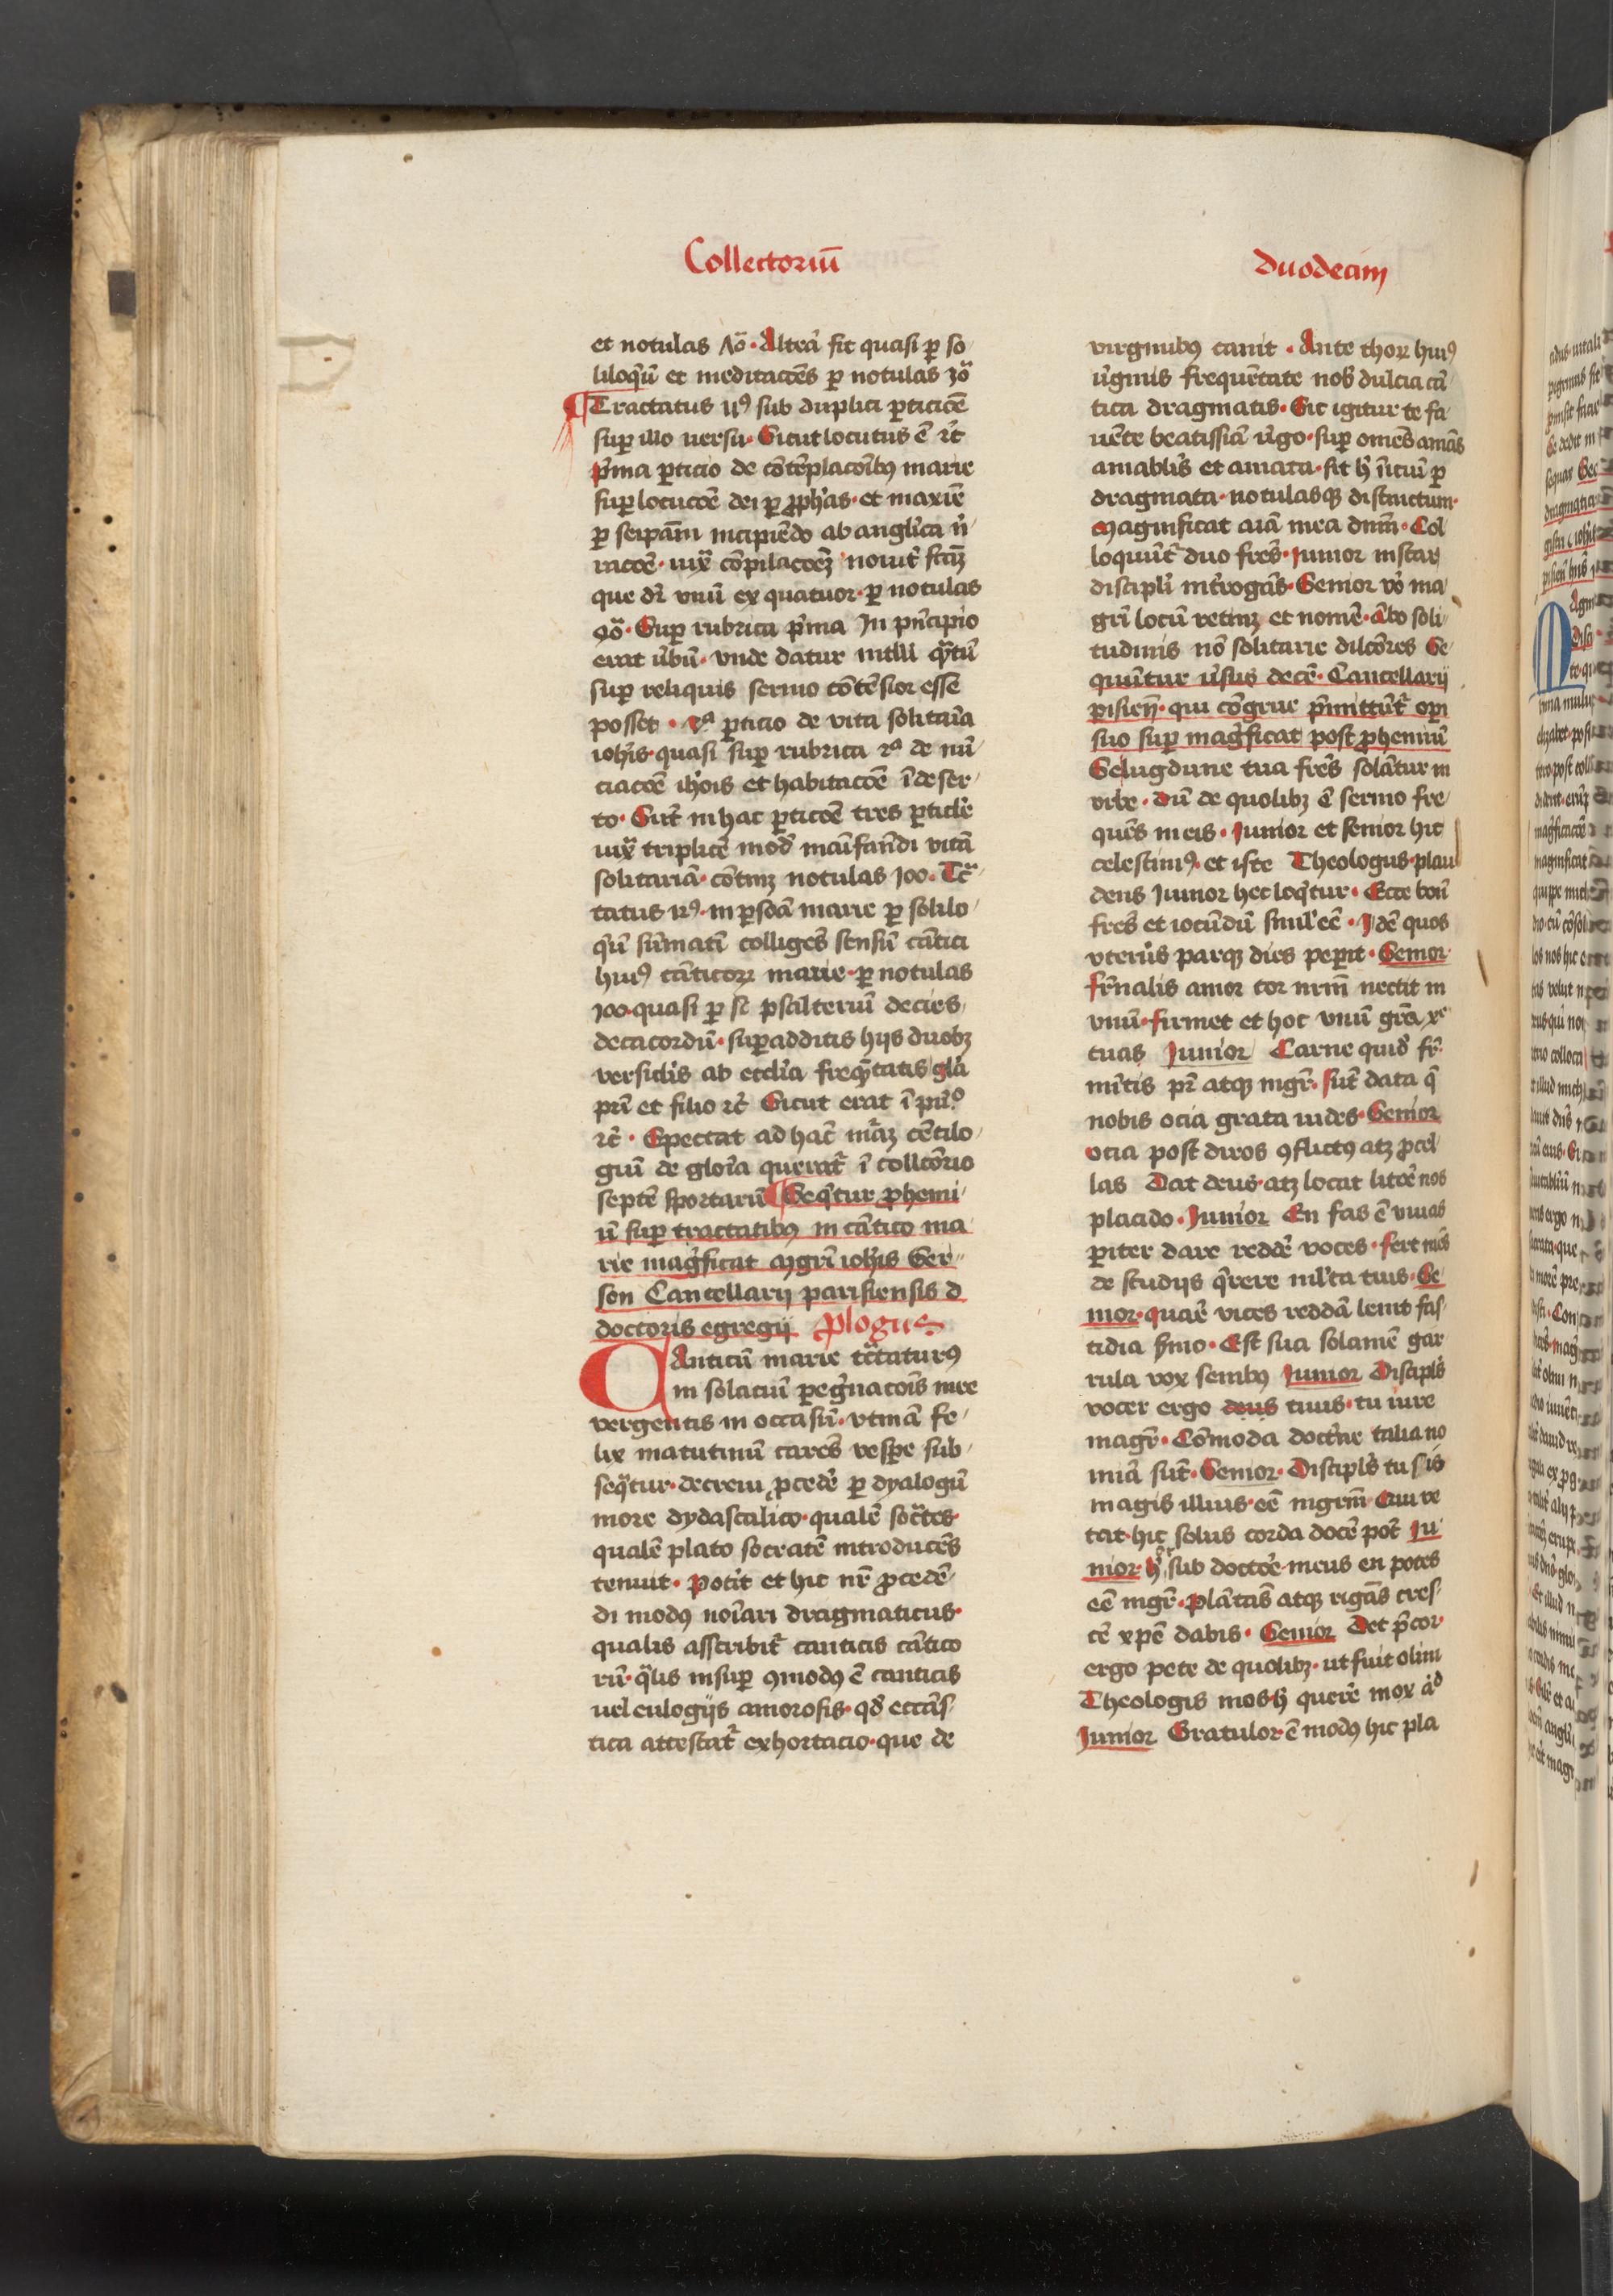 Collectoriū
et notulas Λō · Altera fit quasi ꝑ so
liloqͥū et meditacōēs ꝑ notulas 30
Tractatus 11ꝯ sub duplici ꝑticiōē
suꝑ illo uersu · Sicut locutus ē ⁊c̄
pͥma ꝑticio de cōtēplacōībꝫ marie
suꝑ locucōē dei ꝑ ꝓphās · et maxīe
ꝑ seipam̄ incipiēdo ab anglica
que dr̄ vnū ex quatuor · ꝑ notulas
Suꝑ rubrica pͥma In pͥncipio
erat v̄bū · vnde datur
suꝑ reliquis sermo cōtēsior esse
posset · ꝑticio de vita solitaria
ioh̄is quasi suꝑ rubrica 2ᵃ de nū
ciacōē ih̄ois et habitacōē ī deser
to · Sūt in hac ꝑticōē tres ꝑticl̄e
iuxͣ triplicē mod̄ māifandi vitā
solitariā · cōtinꝫ notulas 100 · Tcͣ
tatus in ꝑsōa marie ꝑ solilo
qͥū sūmatī colligēs sensū cātici
huiꝯ cāticoꝝ marie · ꝑ notulas
100 · quasi ꝑ psalteriū decies
decacordū · suꝑadditis hijs duobꝫ
versicl̄is ab eccl̄ia freqͣ̄tatis gl̄a
pr̄i et filio ⁊c̄ Sicut erat ī pn̄ͦ
⁊c̄ · Spectat ad hāc mͣ̄aꝫ cētilo
giū de glōia querat᷑ ī collcōrio
septē sportarū Seqͥtur ꝓhemi
ū suꝑ tractatibꝫ in cātico ma
rie magͥficat mgr̄i ioh̄is Ger
son Cancellarij parisiensis d
doctoris egregij Plogus
Canticū marie tcͣtaturꝯ
in solaciū ꝑegͥnacōis mee
vergentis in occasū · vtinā fe
lix matutinū carēs vesꝑe sub
seqͣtur · decreui ꝓcedē ꝑ dyalogū
more dydascalico · qualē socͣtes
qualē plato socratē introducēs
tenuit · Potit et hic nr̄ ꝓcedē
di modꝯ noīari dragmaticus
qualis asscribit᷑ canticis cātico
rū · qͣlis insuꝑ ꝯmodꝯ ē canticis
uel eulogijs amorosis · qd̄ eccās
tica attestat᷑ exhortacio · que de
duodecim
virginibꝫ canit · Ante thoꝝ huiꝯ
v̄ginis frequētate nob̄ dulcia cā
tica dragmatis · Sic igitur te fa
uēte beatissīa v̄go · suꝑ omēs amās
amabl̄is et amata · fit hͥ īitiū ꝑ
dragmata · notulasqꝫ distinctum
Magnificat aīa mea dnm̄ · Col
loquūt᷑ duo fr̄es · Iunior instar
discipl̄i int̄rogās · Senior v̄o ma
gr̄i locū retinꝫ et nomē · ābo soli
tudinis nō solitarie dilcōres Se
quūtur v̄sus decē · Cancellarij
pisieñ · qui cōgrue pͥmittūt᷑ oꝑi
suo suꝑ magͥficat post ꝓhemiū
Se lugdune tua fr̄es solātur in
vrbe · dū de quolibꝫ ē sermo fre
quēs in eis · Iunior et senior hic
celestinꝯ · et iste Theologus · plau
dens Iunior hec loqͥtur · Ecce bonū
fr̄es et iocūdū simul eē · Idē quos
vterus parqꝫ dies peperit · Senior
fr̄nalis amor cor nr̄m nectit in
vnū · firmet et hoc vnū grā xᵉ
tuas Iunior Carne quid̄ fr̄
mītis pr̄ atqꝫ mgr̄ · sūt data qͣ
nobis ocia grata uides · Senior
Ocia post diros ꝯflictꝯ atqꝫ ꝓcel
las Dat deus · atqꝫ locat litōē nos
placido · Iunior En fas ē viuas
ꝑiter dare redde voces · fert
de studijs qͥrere ml̄ta tuis · Se
nior · quare vices reddā lenit fas
tidia sͥmo · Est sua solamē gar
rula vox senibꝫ Iunior Discipl̄s
vocer ergo deus tuus · tu iure
magr̄ · Cōmoda doctͥne talia no
mīa sūt · Senior · Discipl̄s tu sis
magis illius · eē mgrm̄ Qui ve
tat · hic solus corda docē pot̄ Iu
nior · hͥ sub doctōē meus en potes
eē mgr̄ · Plātās atqꝫ rigās cres
cē xp̄e dabis · Senior Det pͥcor
ergo pete de quolibꝫ · ut fuit olim
Theologis mos · hͥ querē mox
Iunior Gratulor · ē modꝯ hic pla